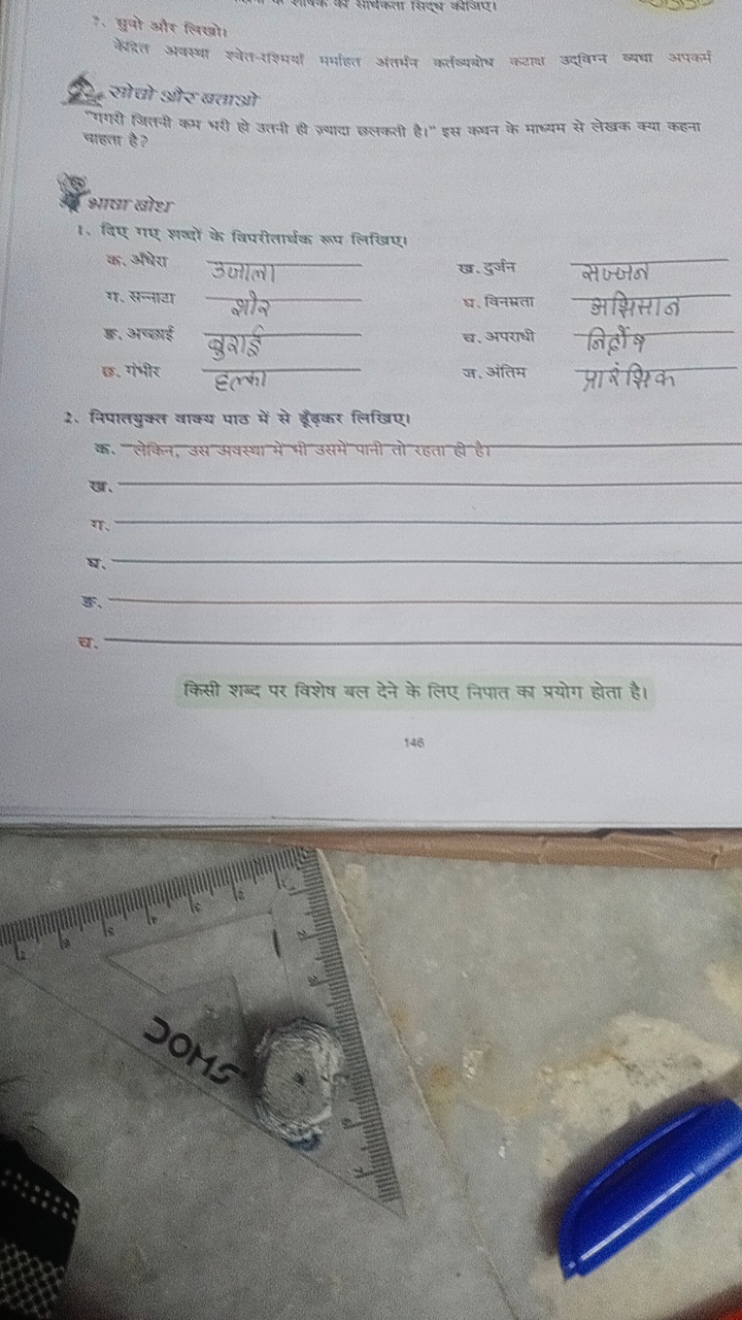 सार्थकता सिद्ध कीजिए।
?. सुनो और लिखो।
केंद्रित अवस्था श्वेत-रश्मियाँ मर्माहत अंतर्मन कर्तव्यबोध कटाक्ष उद्विग्न व्यथा अपकर्म
सोचो और बताओ
"गगरी जितनी कम भरी हो उतनी ही ज़्यादा छलकती है।" इस कथन के माध्यम से लेखक क्या कहना
चाहता है?
भाषा बोध
1. दिए गए शब्दों के विपरीतार्थक रूप लिखिए।
क. अँधेरा उजाला ख. दुर्जन सज्जन
ग. सन्नाटा शोर घ. विनम्रता अभिमान
ङ. अच्छाई बुराई च. अपराधी निर्दोष
छ. गंभीर हल्का ज. अंतिम प्रारंभिक
2. निपातयुक्त वाक्य पाठ में से ढूँढ़कर लिखिए।
क. लेकिन, उस अवस्था में भी उसमें पानी तो रहता ही है।
ख.
ग.
घ.
ङ.
च.
किसी शब्द पर विशेष बल देने के लिए निपात का प्रयोग होता है।
146
DOMS